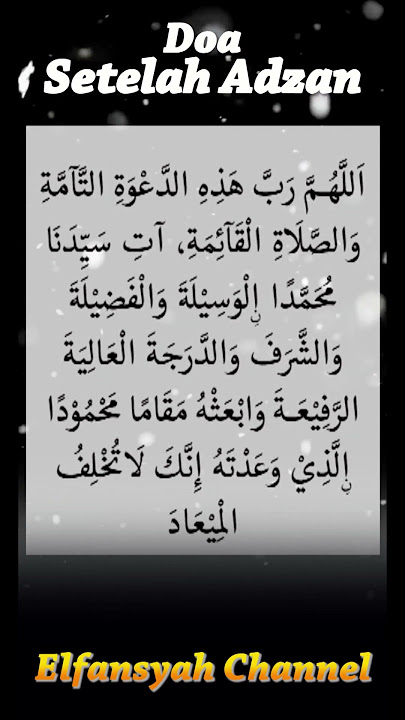 Doa
Setelah Adzan
اَللَّهُمَّ رَبَّ هَذِهِ الدَّعْوَةِ التَّآمَّةِ
وَالصَّلَاةِ الْقَآئِمَةِ، آتِ سَيِّدَنَا
مُحَمَّدًا ۨالْوَسِيْلَةَ وَالْفَضِيْلَةَ
وَالشَّرَفَ وَالدَّرَجَةَ الْعَالِيَةَ
الرَّفِيْعَةَ وَابْعَثْهُ مَقَامًا مَحْمُوْدًا
ۨالَّذِيْ وَعَدْتَهُ إِنَّكَ لَاتُخْلِفُ
الْمِيْعَادَ
Elfansyah Channel